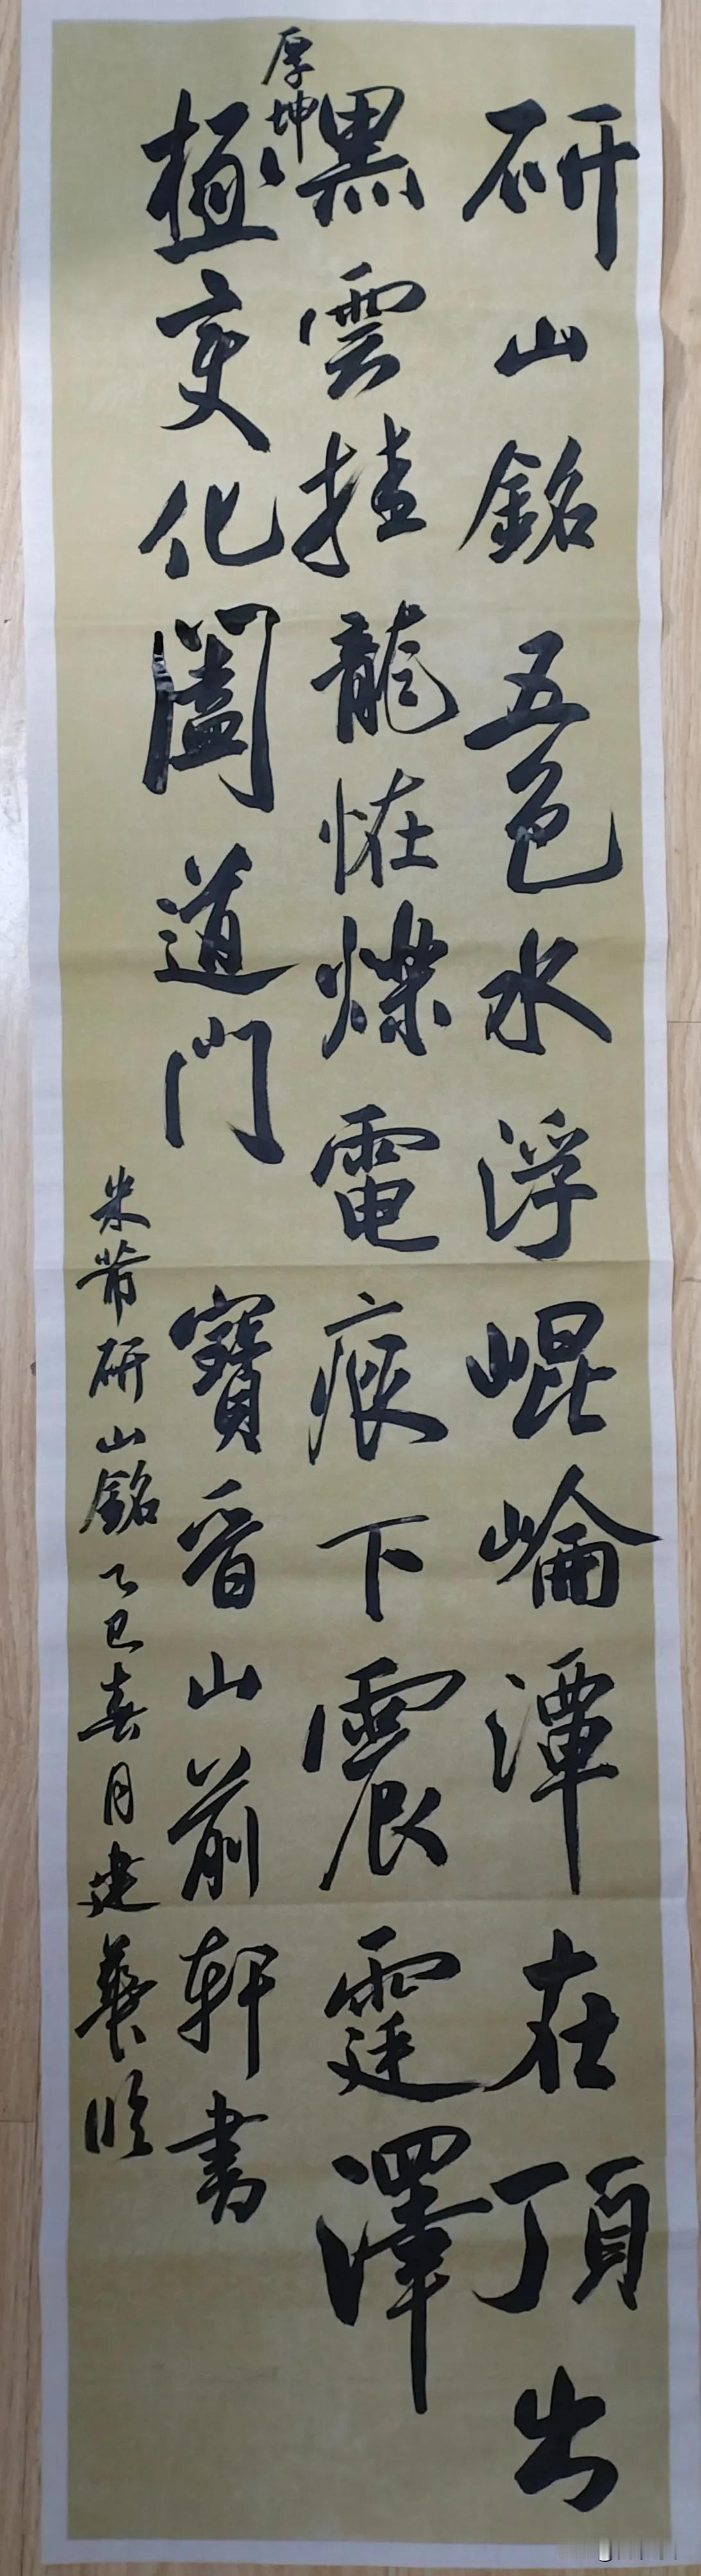 研山銘 五色水浮崐崘潭在頂出
黑雲挂龍恠爍電痕下震霆澤
厚坤
極變化闔道門 寶晉山前軒書
米芾研山銘乙巳春月建義臨